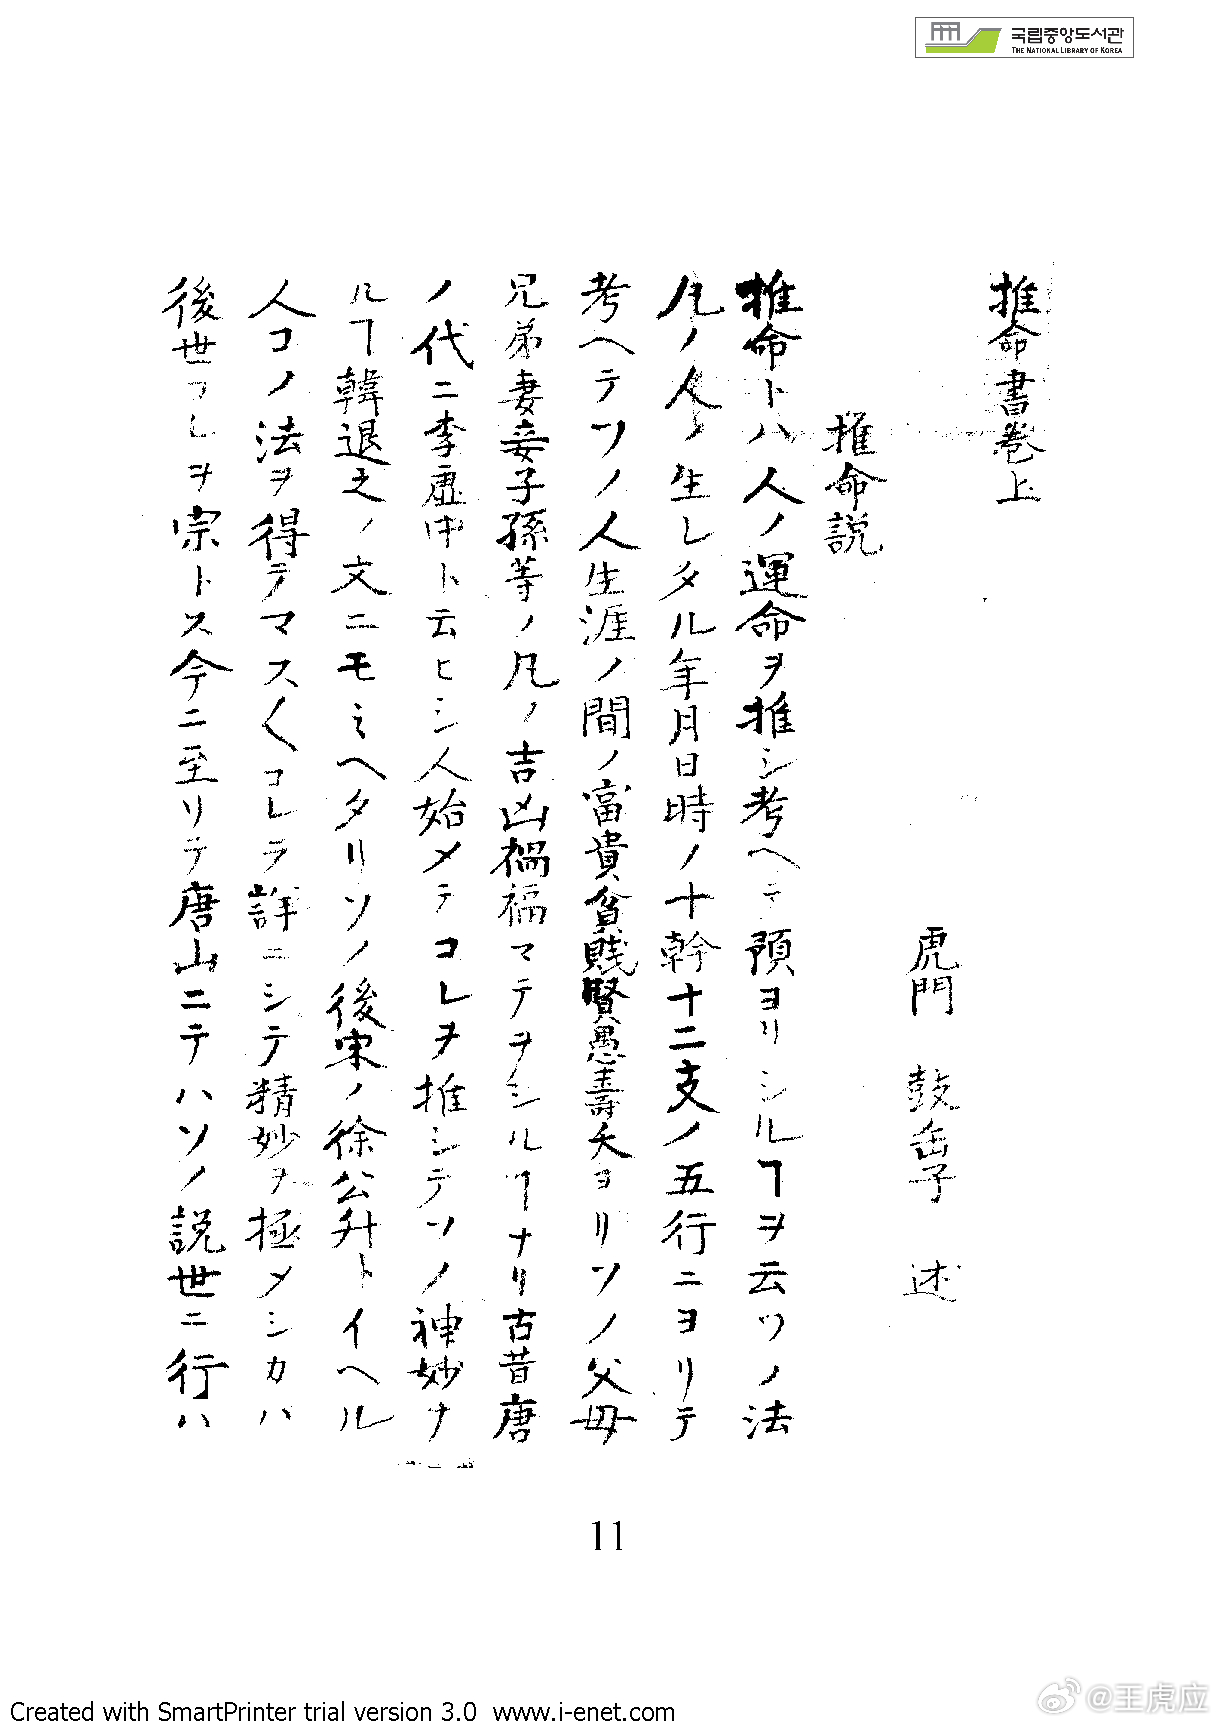 국립중앙도서관
THE NATIONAL LIBRARY OF KOREA
推命書卷上
虎門 鼓缶子 述
推命説
推命トハ人ノ運命ヲ推シ考ヘテ預ヨリシルヿヲ云ソノ法
凡ノ人ノ生レタル年月日時ノ十幹十二支ノ五行ニヨリテ
考ヘテソノ人生涯ノ間ノ富貴貧賎賢愚壽夭ヨリソノ父母
兄弟妻妾子孫等ノ凡ノ吉凶禍福マテヲシルヿナリ古昔唐
ノ代ニ李虚中ト云ヒシ人始メテコレヲ推シテソノ神妙ナ
ルヿ韓退之ノ文ニモミヘタリソノ後宋ノ徐公升トイヘル
人コノ法ヲ得テマス〱コレヲ詳ニシテ精妙ヲ極メシカハ
後世コレヲ宗トス今ニ至リテ唐山ニテハソノ説世ニ行ハ
11
Created with SmartPrinter trial version 3.0 www.i-enet.com
@王虎应